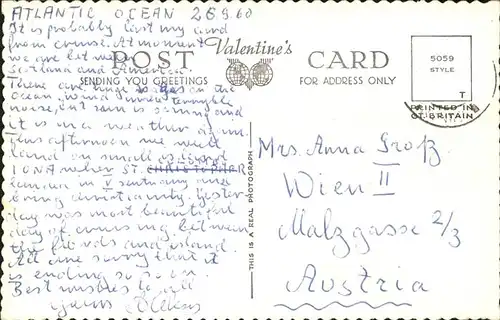 ATLANTIC OCEAN 26.9.60
It is probably last my card
from cruise. At moment
we are between
Scotland and America.
There are huge on the
Ocean
noise. But sun is shining and
it is warm weather
afternoon we will
land on small island
IONA where ST. CHRISTOPHER
landed in V century and
bring christianity. Yester
day was most beautiful
day of cruising between
the fiords and island.
All are sorry that it
is ending so soon.
Best wishes to all
yours
Valentine's
POST CARD
SENDING YOU GREETINGS
FOR ADDRESS ONLY
5059
STYLE
T
PRINTED IN
GT. BRITAIN
THIS IS A REAL PHOTOGRAPH
Mrs. Anna Groß
Wien II
Malzgasse 2/3
Austria